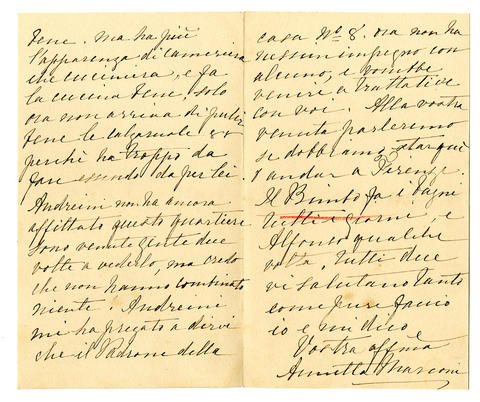 bene. ma ha più
l'apparenza di cameriera
che cuciniera, e fa
la cucina bene. solo
ora non arriva di pulir
bene le casseruole &&
perchè ha troppo da
fare essendo da per lei.
Andreini non ha ancora
affittato questo quartiere
sono venute gente due
volte a vederlo, ma credo
che non hanno combinato
niente. Andreini
mi ha pregato a dirvi
che il Padrone della
casa No 8. ora non ha
nessun impegno con
alcuno, e potrebbe
venire a trattative
con voi. Alla vostra
venuta parleremo
se dobbiamo star qui
o andar a Firenze.
Il Bimbo fa i bagni
tutti i giorni, e
Alfonso qualche
volta. Tutti due
vi salutano tanto
come pure faccio
io e mi dico
Vostra affma
Annetta Marconi